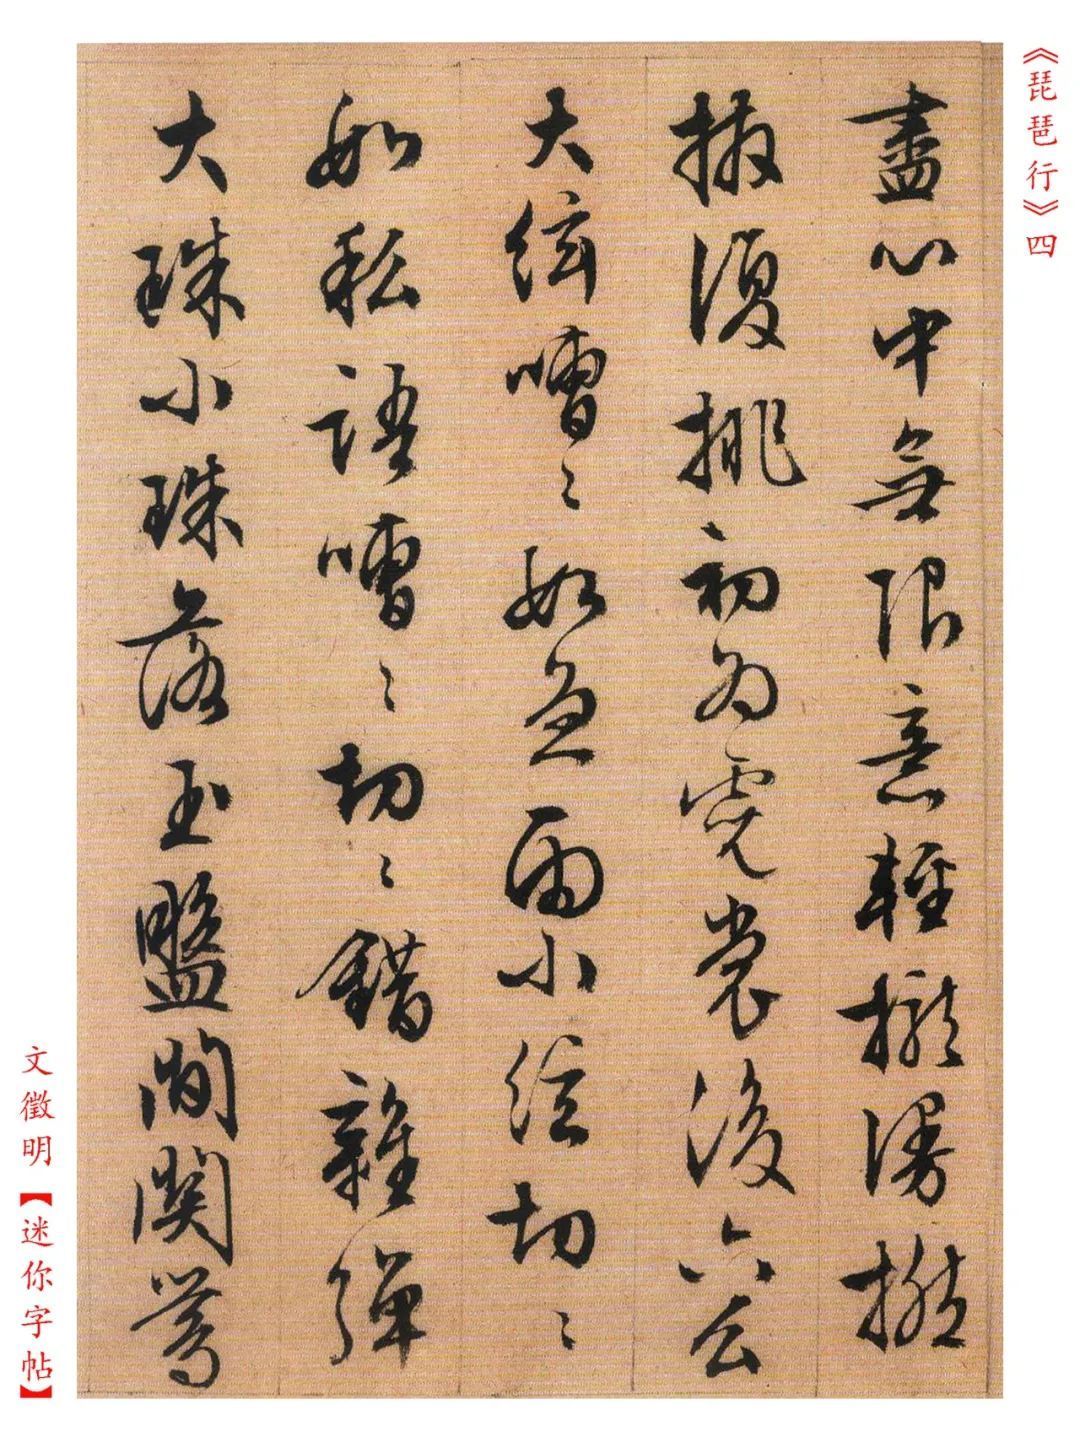 《琵琶行》四
盡心中無限意輕攏慢撚
抹復挑初為霓裳後六么
大絃嘈〻如急雨小絃切〻
如私語嘈〻切〻錯雜彈
大珠小珠落玉盤間關鶯
文徵明【迷你字帖】